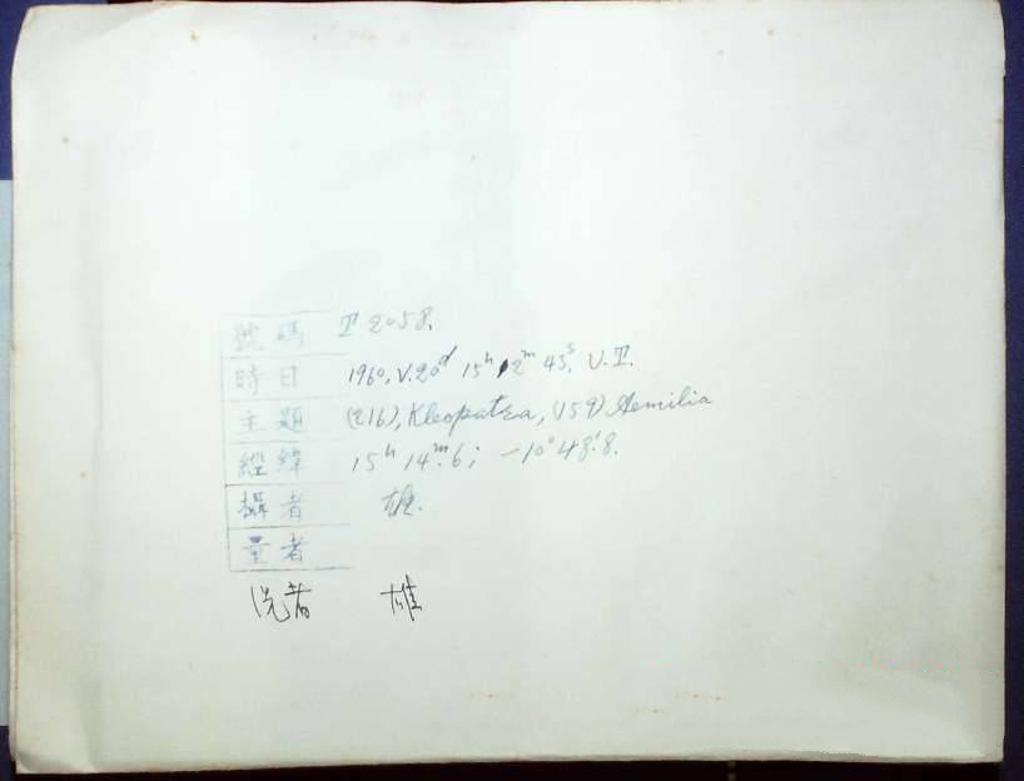 號碼 T 2058.
時日 1960, V. 20ᵈ 15ʰ 12ᵐ 43ˢ. U.T.
主題 (216), Kleopatra, (159) Aemilia
經緯 15ʰ 14ᵐ.6; -10°48'.8.
攝者 雄.
量者
洗者 雄